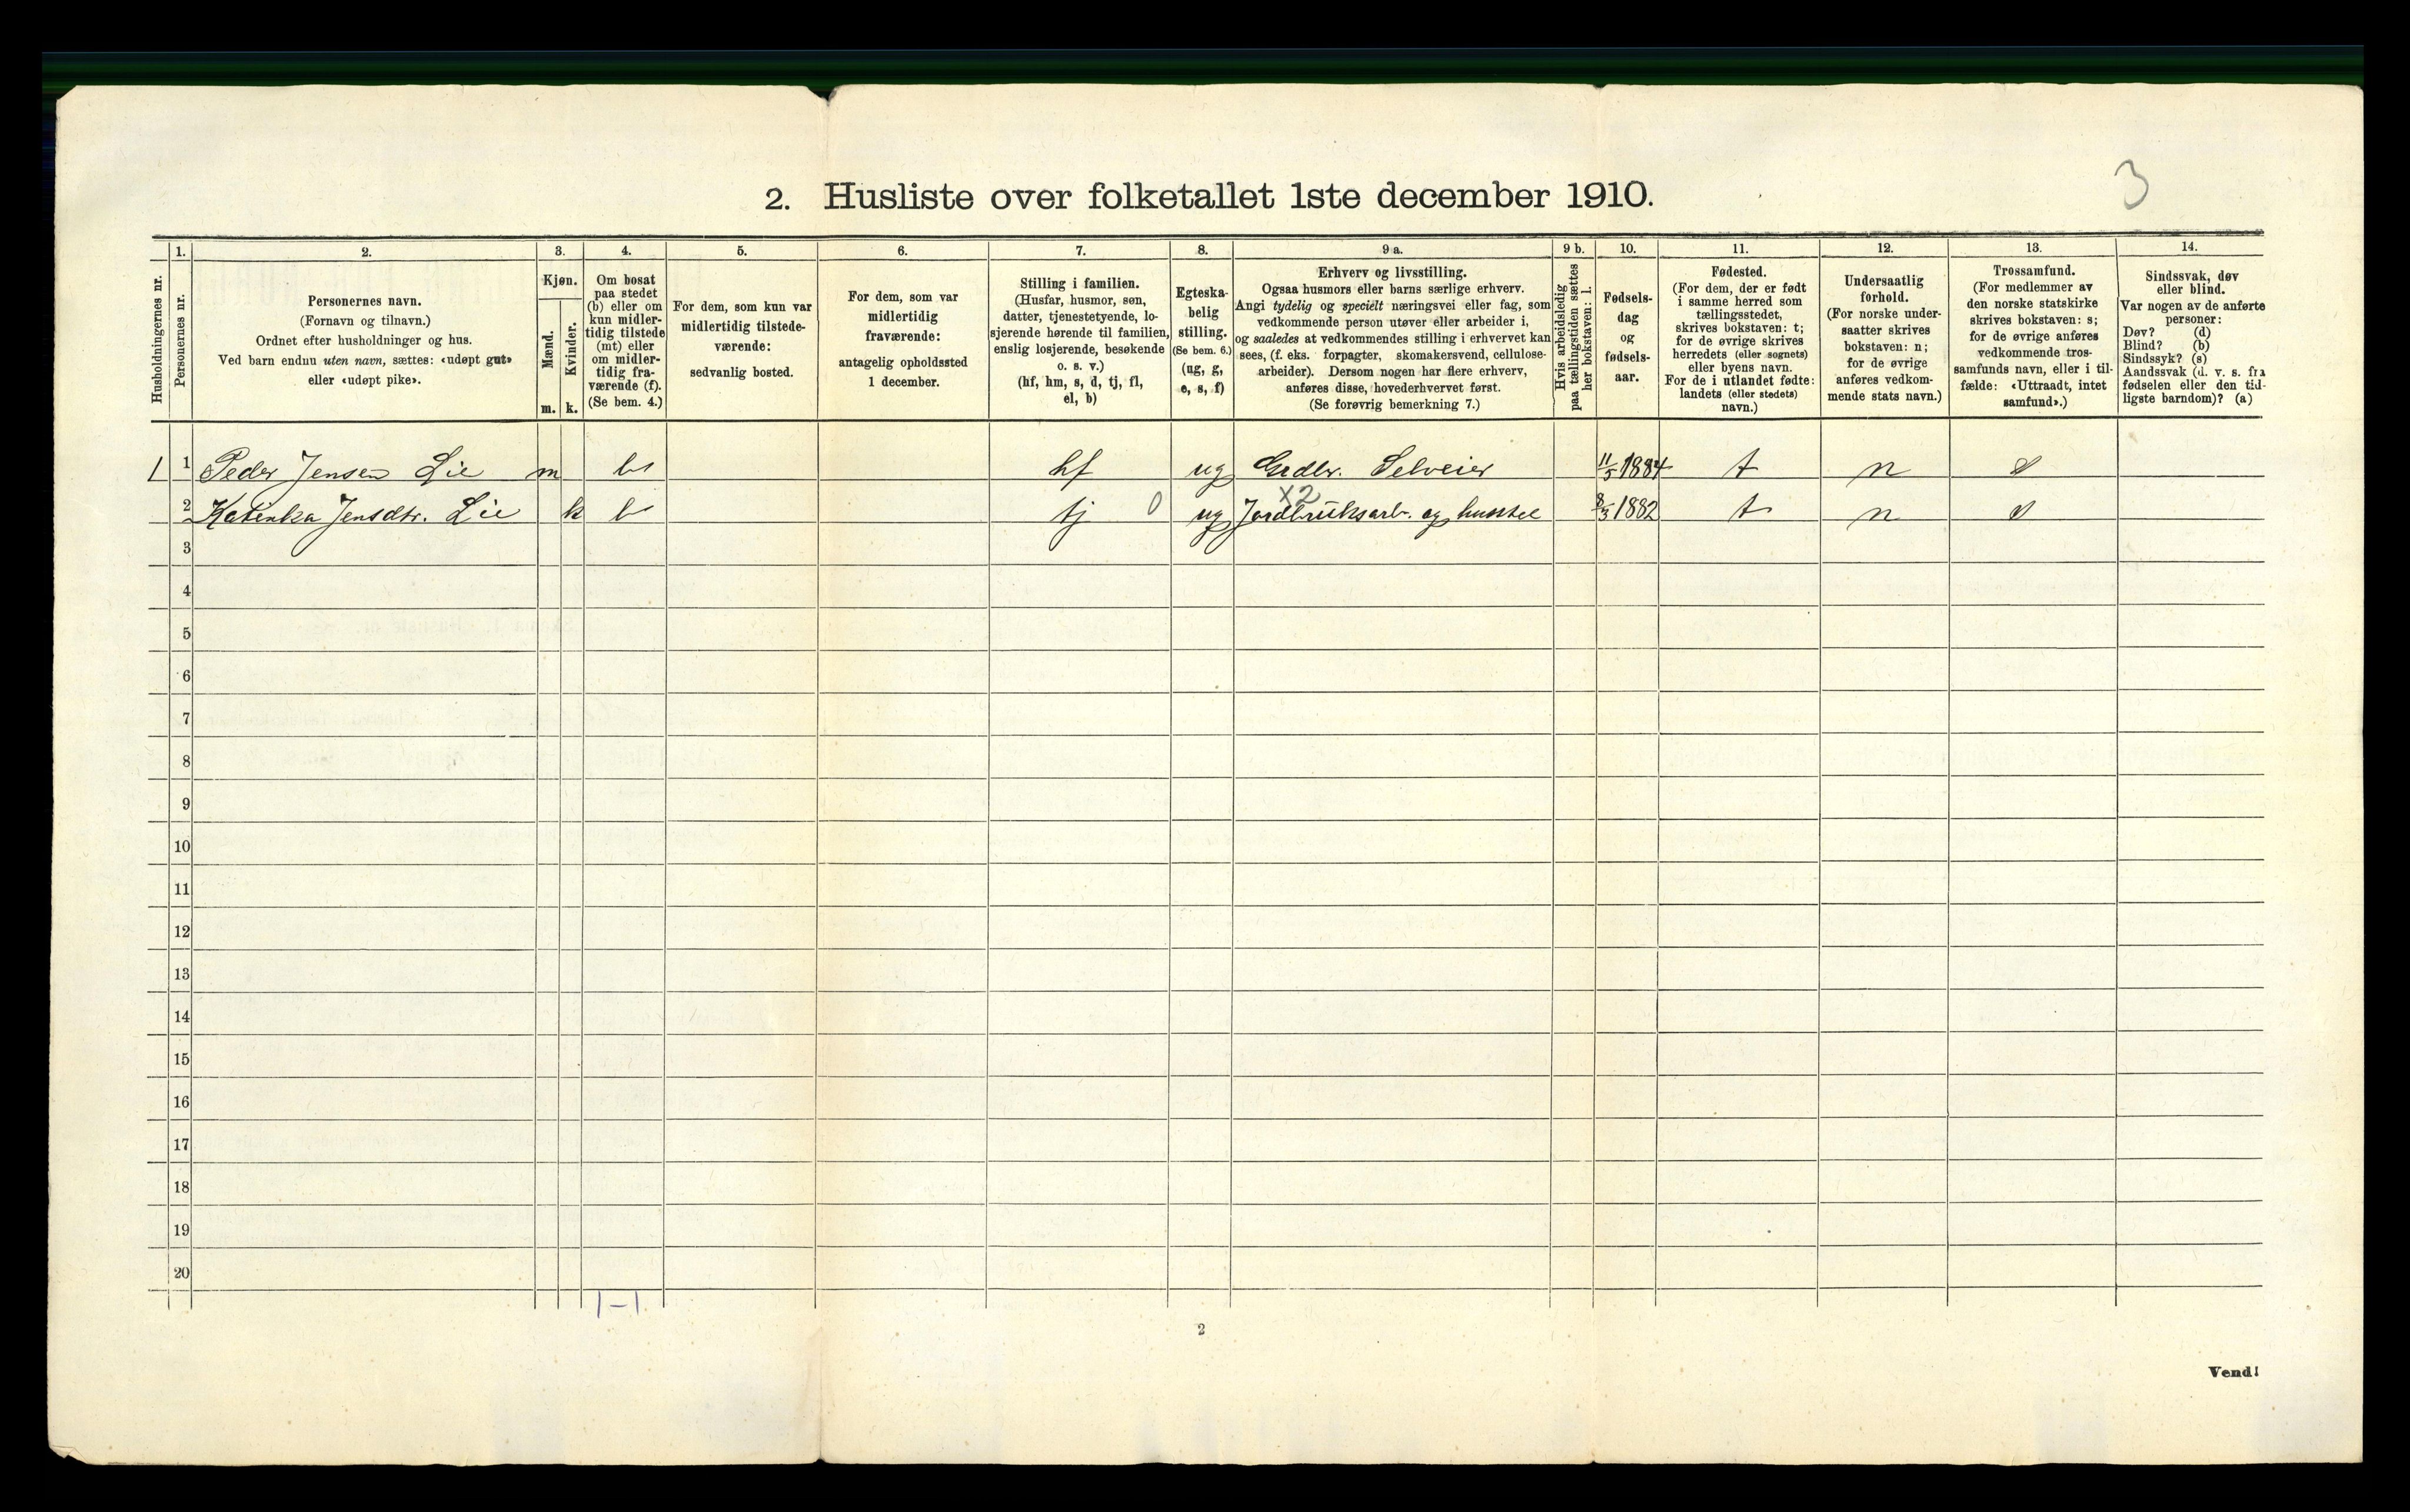 3
2. Husliste over folketallet 1ste december 1910.
Husholdningernes nr.
1.
Personernes nr.
2.
Personernes navn.
(Fornavn og tilnavn.)
Ordnet efter husholdninger og hus.
Ved barn endnu uten navn, sættes: «udøpt gut»
eller «udøpt pike».
3.
Kjøn.
Mænd.
Kvinder.
m. k.
4.
Om bosat
paa stedet
(b) eller om
kun midler-
tidig tilstede
(mt) eller
om midler-
tidig fra-
værende (f).
(Se bem. 4.)
5.
For dem, som kun var
midlertidig tilstede-
værende:
sedvanlig bosted.
6.
For dem, som var
midlertidig
fraværende:
antagelig opholdssted
1 december.
7.
Stilling i familien.
(Husfar, husmor, søn,
datter, tjenestetyende, lo-
sjerende hørende til familien,
enslig losjerende, besøkende
o. s. v.)
(hf, hm, s, d, tj, fl,
el, b)
8.
Egteska-
belig
stilling.
(Se bem. 6.)
(ug, g,
e, s, f)
9 a.
Erhverv og livsstilling.
Ogsaa husmors eller barns særlige erhverv.
Angi tydelig og specielt næringsvei eller fag, som
vedkommende person utøver eller arbeider i,
og saaledes at vedkommendes stilling i erhvervet kan
sees, (f. eks. forpagter, skomakersvend, cellulose-
arbeider). Dersom nogen har flere erhverv,
anføres disse, hovederhvervet først.
(Se forøvrig bemerkning 7.)
9 b.
Hvis arbeidsledig
paa tællingstiden sættes
her bokstaven: l.
10.
Fødsels-
dag
og
fødsels-
aar.
11.
Fødested.
(For dem, der er født
i samme herred som
tællingsstedet,
skrives bokstaven: t;
for de øvrige skrives
herredets (eller sognets)
eller byens navn.
For de i utlandet fødte:
landets (eller stedets)
navn.)
12.
Undersaatlig
forhold.
(For norske under-
saatter skrives
bokstaven: n;
for de øvrige
anføres vedkom-
mende stats navn.)
13.
Trossamfund.
(For medlemmer av
den norske statskirke
skrives bokstaven: s;
for de øvrige anføres
vedkommende tros-
samfunds navn, eller i til-
fælde: «Uttraadt, intet
samfund».)
14.
Sindssvak, døv
eller blind.
Var nogen av de anførte
personer:
Døv? (d)
Blind? (b)
Sindssyk? (s)
Aandssvak (d. v. s. fra
fødselen eller den tid-
ligste barndom)? (a)
1 1 Peder Jensen Lie m b hf ug Grdbr. Selveier 11/5 1884 t n s
X2
2 Katinka Jensdtr. Lie k b tj 0 ug Jordbruksarb. og husstel 8/3 1882 t n s
3
4
5
6
7
8
9
10
11
12
13
14
15
16
17
18
19
20
1-1
2
Vend!